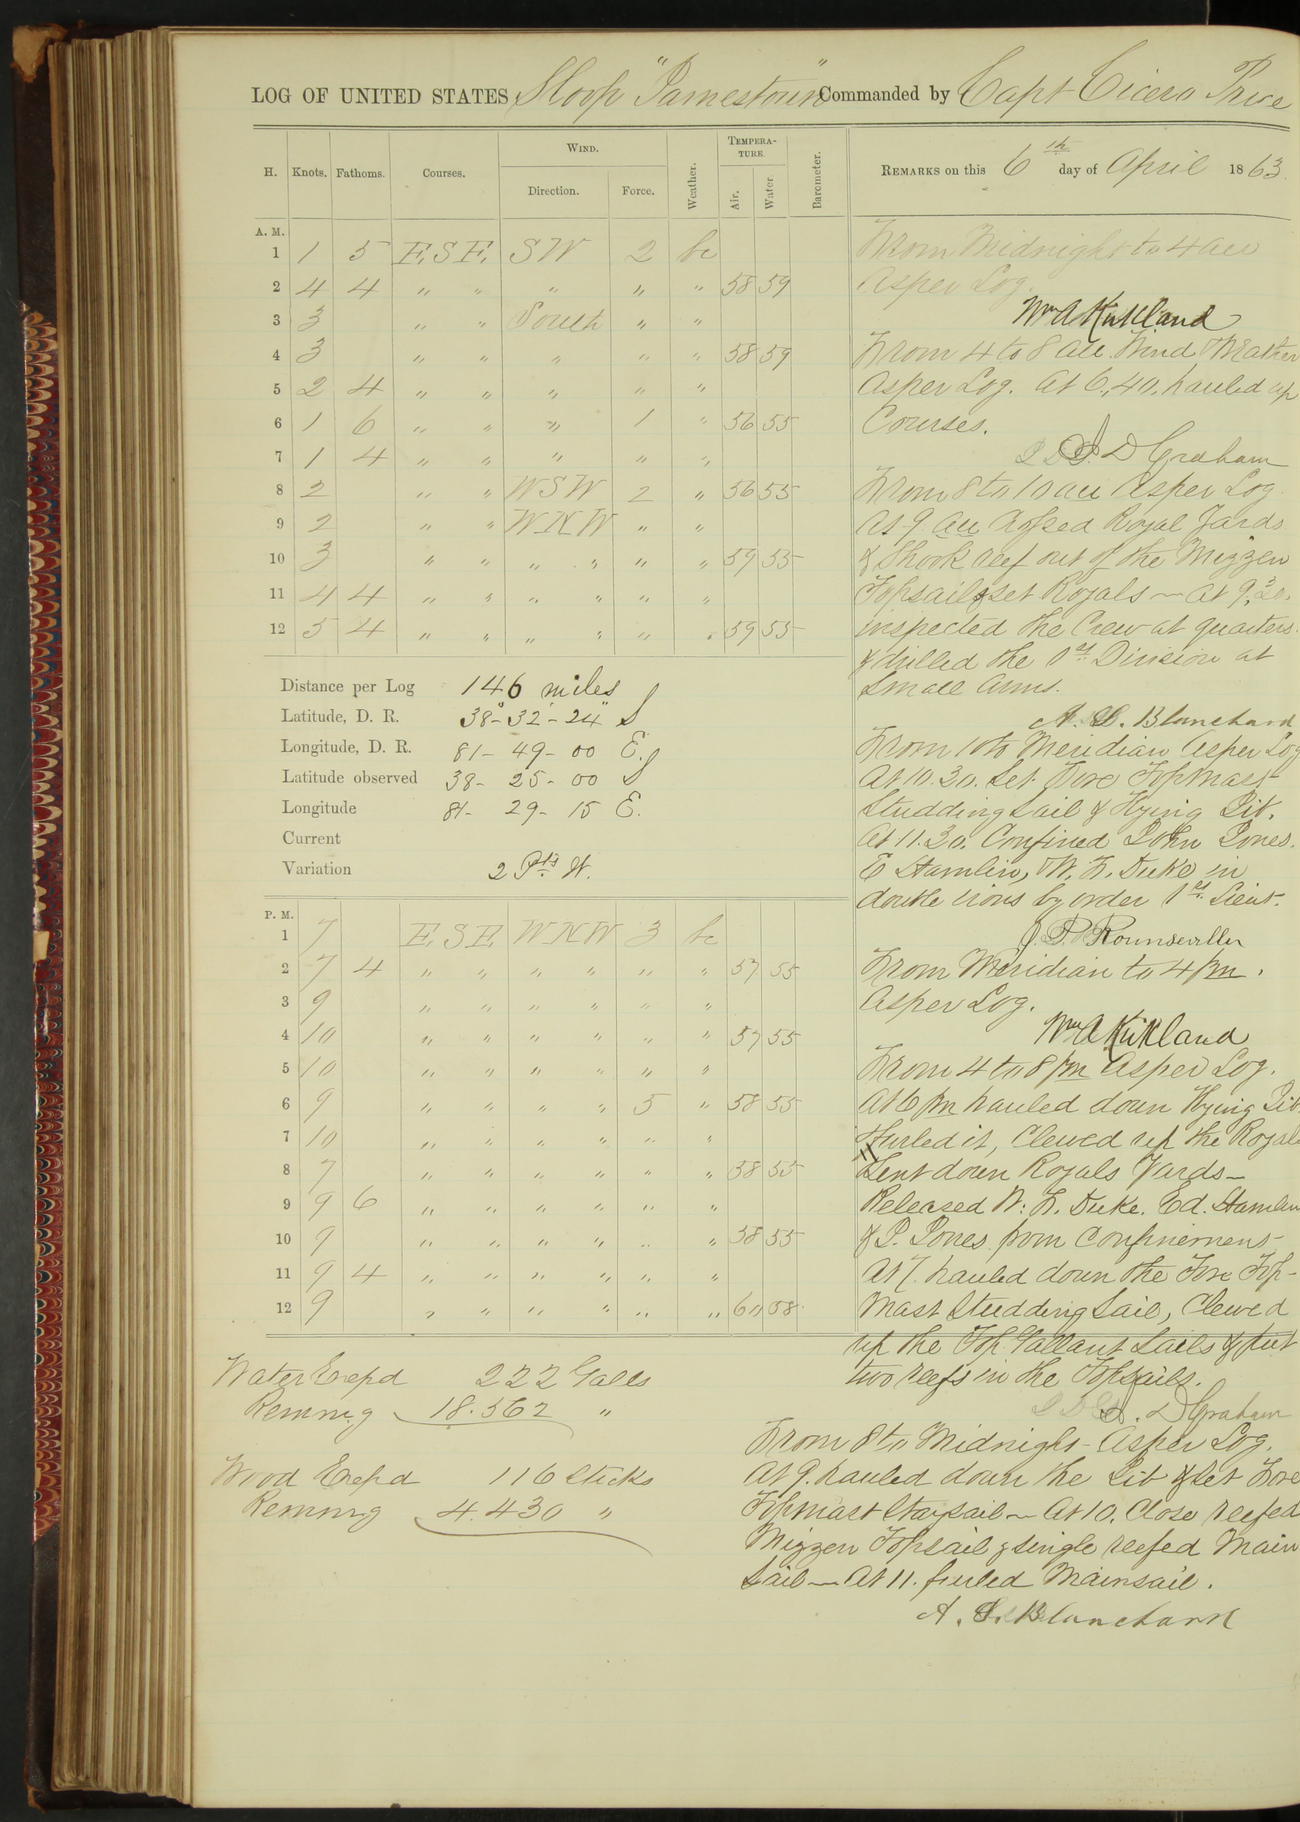 LOG OF UNITED STATES Sloop "Jamestown" Commanded by Capt Cicero Price
H. Knots. Fathoms. Courses. WIND. Direction. Force. Weather. TEMPERATURE. Air. Water. Barometer.
REMARKS on this 6th day of April 1863.
A. M.
1 1 5 E.S.E. SW 2 bc
2 4 4 " " " " " 58 59
3 3 " " South " "
4 3 " " " " " 58 59
5 2 4 " " " " "
6 1 6 " " " 1 " 56 55
7 1 4 " " " " "
8 2 " " WSW 2 " 56 55
9 2 " " WNW " "
10 3 " " " " " " 59 55
11 4 4 " " " " " "
12 5 4 " " " " " " 59 55
Distance per Log 146 miles
Latitude, D. R. 38°-32'-24" S
Longitude, D. R. 81-49-00 E.
Latitude observed 38-25-00 S
Longitude 81-29-15 E.
Current
Variation 2 Pts W.
P. M.
1 7 E.S.E. WNW 3 bc
2 7 4 " " " " " " 57 55
3 9 " " " " " "
4 10 " " " " " " 57 55
5 10 " " " " " "
6 9 " " " " 5 " 58 55
7 10 " " " " " "
8 7 " " " " " " 58 55
9 9 6 " " " " " "
10 9 " " " " " " 58 55
11 9 4 " " " " " "
12 9 " " " " " " 60 58
Water Expd 222 Galls
Remng 18.562 "
Wood Expd 116 Sticks
Remng 4.430 "
From Midnight to 4 am
As per Log.
Wm A Kirkland
From 4 to 8 am. Wind & Weather
As per Log. At 6.40. hauled up
Courses.
J. D Graham
From 8 to 10 am As per Log.
At 9 am Crossed Royal Yards
& Shook reef out of the Mizzen
Topsail & set Royals — At 9.30.
inspected the Crew at quarters.
& drilled the 1st Division at
Small Arms.
A. S. Blanchard
From 10 to Meridian As per Log
At 10.30. Set Fore Topmast
Studding Sail & Flying Jib.
At 11.30. Confined John Jones.
E Hamlin, W. F. Duke in
double irons by order 1st Lieut.
J. P. Rounseviller
From Meridian to 4 pm.
As per Log.
Wm A Kirkland
From 4 to 8 pm As per Log.
At 6 pm hauled down Flying Jib
& furled it, Clewed up the Royals
Sent down Royals Yards —
Released W. F. Duke. Ed. Hamlin
& J. Jones from Confinement
At 7. hauled down the Fore Top-
Mast Studding Sail, Clewed
up the Top Gallant Sails & put
two reefs in the Topsails.
J. D Graham
From 8 to Midnight - As per Log.
At 9. hauled down the Jib & Set Fore
Topmast Staysail — At 10. Close reefed
Mizzen Topsail & single reefed Main
Sail — At 11. furled Mainsail.
A. S. Blanchard